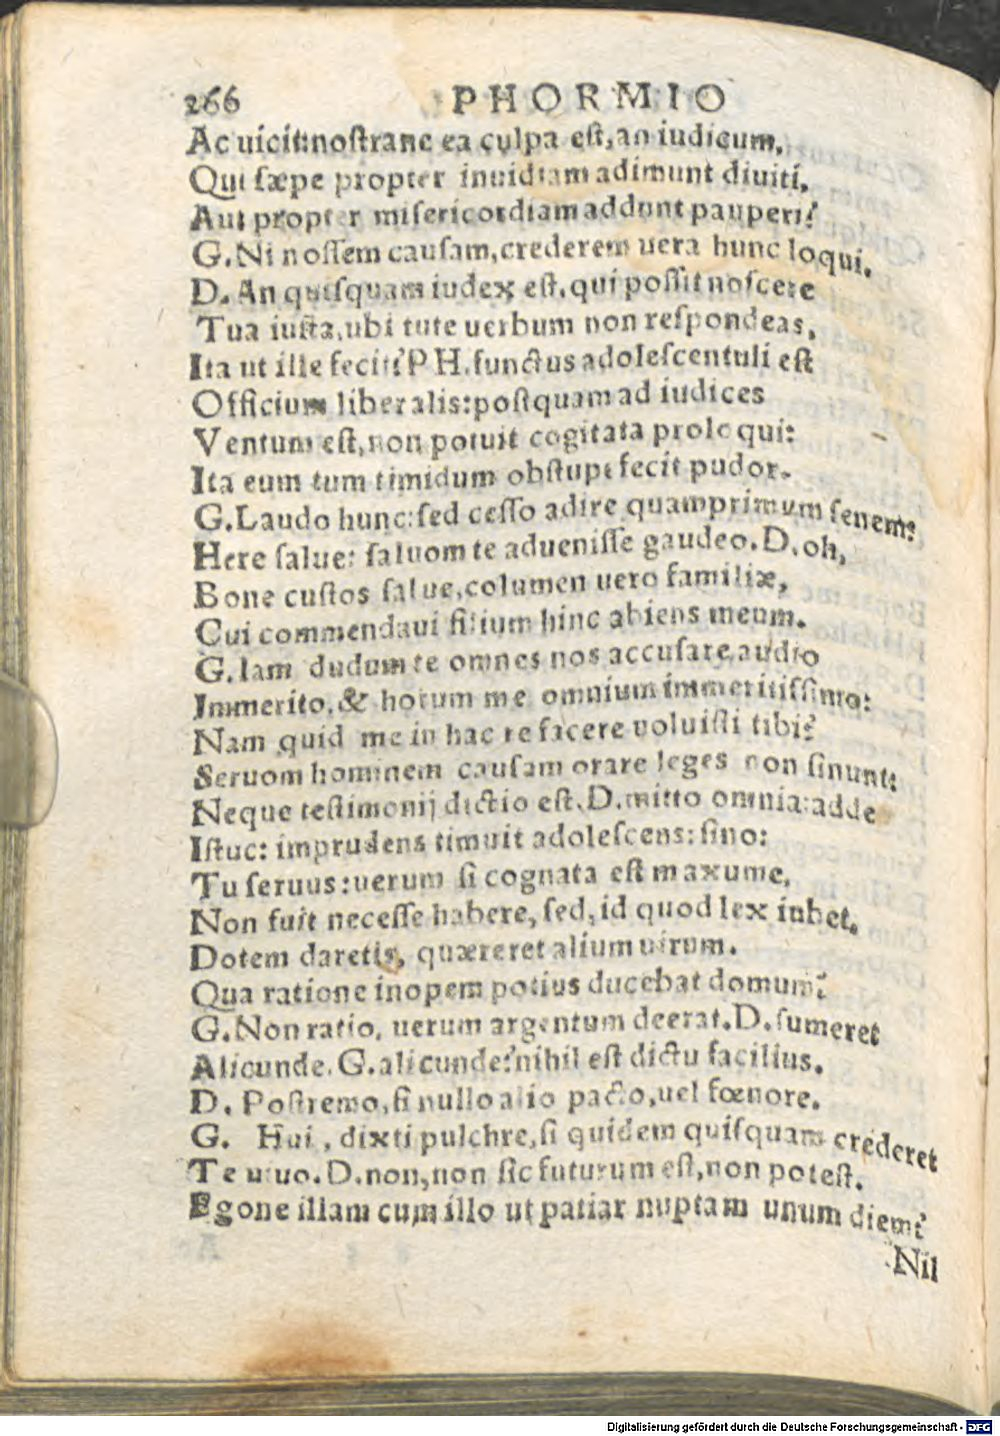 266 PHORMIO
Ac uicit: nostrane ea culpa est, an iudicum,
Qui sæpe propter inuidiam adimunt diuiti,
Aut propter misericordiam addunt pauperi?
G. Ni nossem causam, crederem uera hunc loqui.
D. An quisquam iudex est, qui possit noscere
Tua iusta, ubi tute uerbum non respondeas,
Ita ut ille fecit? PH. functus adolescentuli est
Officium liberalis: postquam ad iudices
Ventum est, non potuit cogitata proloqui:
Ita eum tum timidum obstupefecit pudor.
G. Laudo hunc: sed cesso adire quamprimum senem?
Here salue: saluom te aduenisse gaudeo. D. oh,
Bone custos salue, columen uero familiæ,
Cui commendaui filium hinc abiens meum.
G. Iam dudum te omnes nos accusare audio
Immerito, & horum me omnium immeritissimo:
Nam quid me in hac re facere uoluisti tibi?
Seruom hominem causam orare leges non sinunt:
Neque testimonij dictio est. D. mitto omnia: adde
Istuc: imprudens timuit adolescens: sino:
Tu seruus: uerum si cognata est maxume,
Non fuit necesse habere, sed, id quod lex iubet,
Dotem daretis, quæreret alium uirum.
Qua ratione inopem potius ducebat domum?
G. Non ratio, uerum argentum deerat. D. sumeret
Alicunde. G. alicunde? nihil est dictu facilius.
D. Postremo, si nullo alio pacto, uel fœnore.
G. Hui, dixti pulchre, si quidem quisquam crederet
Te uiuo. D. non, non sic futurum est, non potest.
Egone illam cum illo ut patiar nuptam unum diem?
Nil
Digitalisierung gefördert durch die Deutsche Forschungsgemeinschaft - DFG